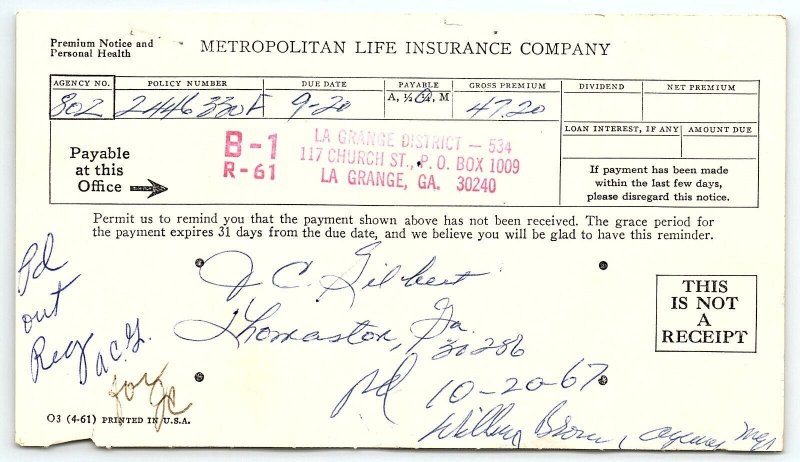 Premium Notice and
Personal Health
METROPOLITAN LIFE INSURANCE COMPANY
AGENCY NO. POLICY NUMBER DUE DATE PAYABLE GROSS PREMIUM DIVIDEND NET PREMIUM
A, ½, ¼, M
802 2446330 F 9-20 47.20
LOAN INTEREST, IF ANY AMOUNT DUE
Payable
at this
Office
B-1
R-61
LA GRANGE DISTRICT - 534
117 CHURCH ST., P. O. BOX 1009
LA GRANGE, GA. 30240
If payment has been made
within the last few days,
please disregard this notice.
Permit us to remind you that the payment shown above has not been received. The grace period for
the payment expires 31 days from the due date, and we believe you will be glad to have this reminder.
J C. Gilbert
Thomaston, Ga.
30286
pd 10-20-67
Brown, agency Mgr
Pd
out
Reg
a C. G.
for
JC
THIS
IS NOT
A
RECEIPT
O3 (4-61) PRINTED IN U.S.A.